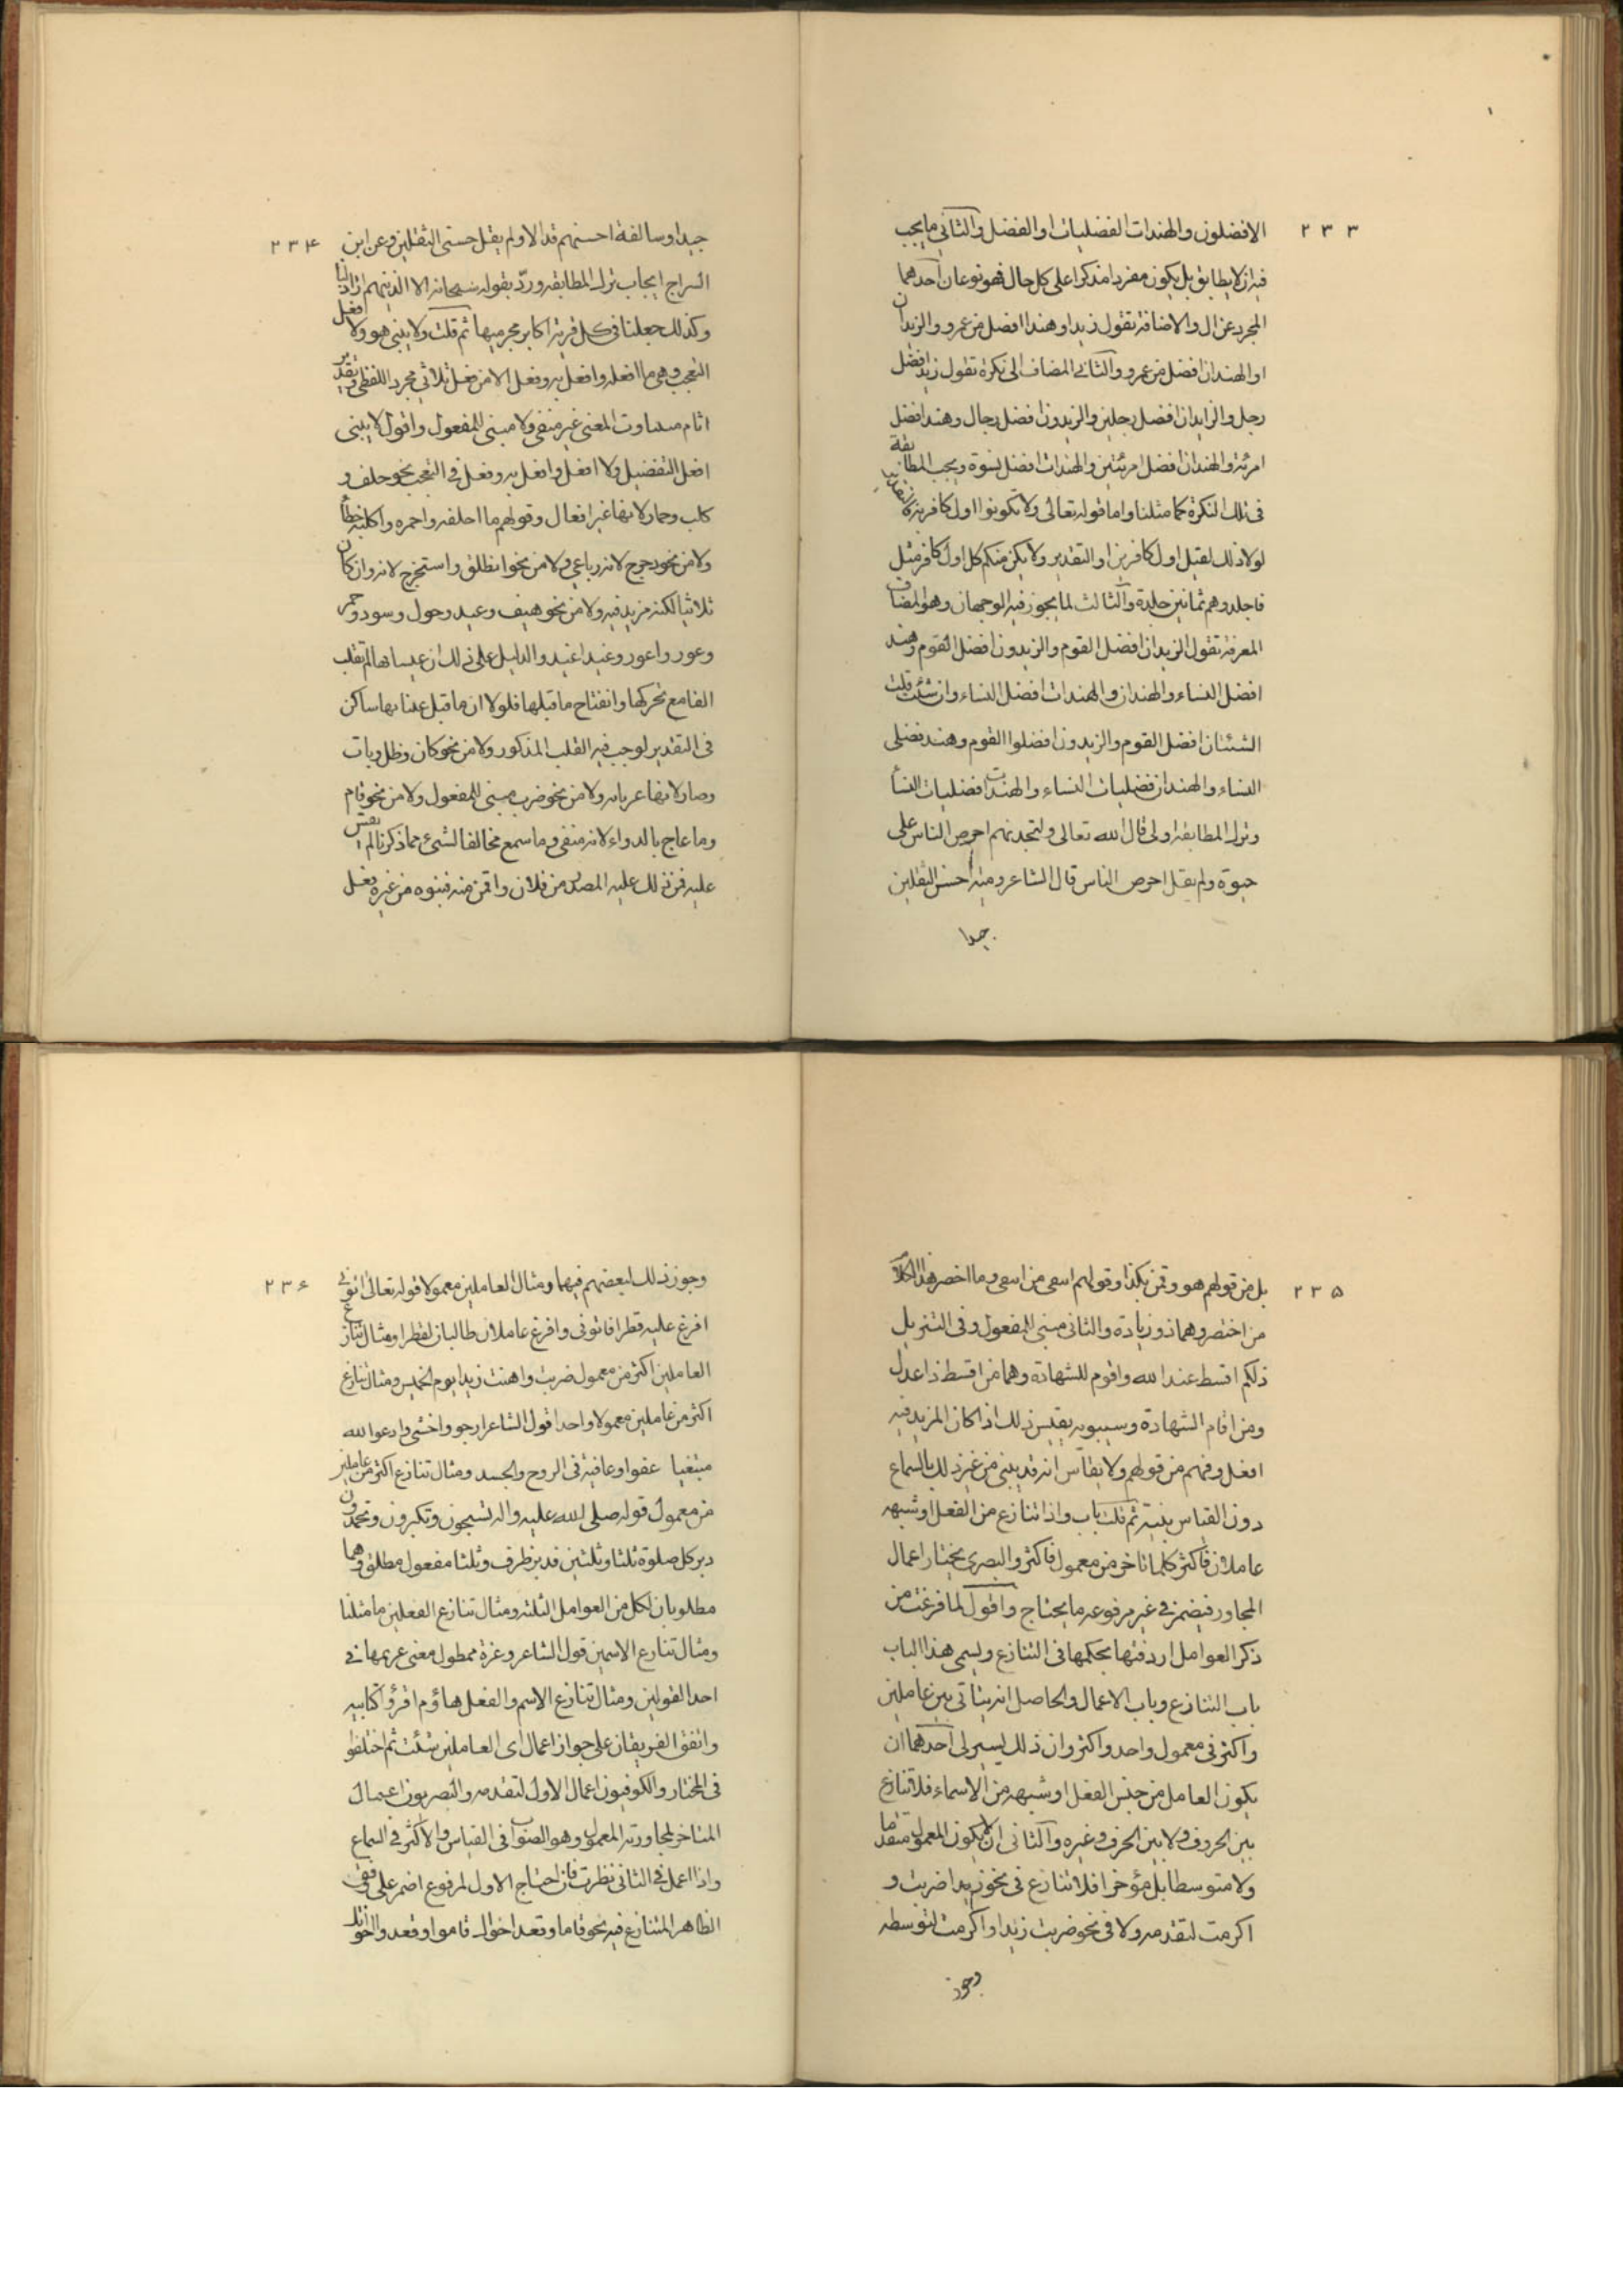 ٢٣٣
الافضلون والهندات الفضليات او الفضل والثاني ما يجب
فيه ان لا يطابق بل يكون مفردا مذكرا على كل حال فهو نوعان احدهما
المجرد عن ال والاضافة تقول زيد او هند افضل من عمرو والزيدان
او الهندان افضل من عمرو والثاني المضاف الى نكرة تقول زيد افضل
رجل والزايدان افضل رجلين والزيدون افضل رجال وهند افضل
امرئة والهندان افضل امرئتين والهندات افضل نسوة ويجب المطابقة
في تلك النكرة كما مثلنا واما قوله تعالى ولا تكونوا اول كافر به
لولا ذلك لقيل اول كافرين او التقدير ولا يكن منكم كل اول كافر مثل
فاجلدوهم ثمانين جلدة والثالث لما يجوز فيه الوجهان وهو المضاف
المعرفة تقول الزيدان افضل القوم والزيدون افضل القوم وهند
افضل النساء والهندان والهندات افضل النساء وان شئت قلت
الشئنان افضل القوم والزيدون افضلوا القوم وهند فضلى
النساء والهندان فضليات النساء والهندات افضليات النسأ
وترك المطابقة اولى قال الله تعالى ولتجدنهم احرص الناس على
حيوة ولم يقل احرص الناس قال الشاعر ومية احسن الثقلين
جيدا
٢٣۴
جيدا وسالفة احسنهم قذالا ولم يقل حسنى الثقلين وعن ابن
السراج ايجاب ترك المطابقه ورد بقوله سبحانه الا الذينهم اراذلنا
وكذلك جعلنا في كل قرية اكابر مجرميها ثم قلت ولا يبنى هو ولا افعل
التعجب وهي ما افعله وافعل به وفعل الا من فعل ثلاثي مجرد اللفظي وتقدير
اتام متفاوت المعنى غير منفي ولا مبني للمفعول واقول لا يبنى
افعل التفضيل ولا افعل وافعل به وفعل في التعجب نحو جلف و
كلب وحمار لانها غير افعال وقولهم ما احلفه واحمره واكلبه خطأ
ولا من نحو دحرج لانه رباعي ولا من نحو انطلق واستخرج لانه وان كان
ثلاثيا لكنه مزيد فيه ولا من نحو هيف وغيد وحول وسود وحمر
وعور واعور وغيد اغيد والدليل على ذلك ان عيناتها لم تقلب
الفا مع تحركها وانفتاح ما قبلها فلولا ان ما قبل عيناتها ساكن
في التقدير لوجب فيه القلب المذكور ولا من نحو كان وظل وبات
وصار لانها غير تامة ولا من نحو ضرب مبني للمفعول ولا من نحو ما قام
وما عاج بالدواء لانه منفي وما سمع مخالفا لشئ مما ذكرنا لم يقس
عليه فمن ذلك عليه المصدر من فلان واقمن منه فبنوه من غير فعل
٢٣۵
بل من قولهم هو وقمن بكذا وقولهم اسعى من اسعى وما اخصر هذا الكلام
من اختصر وهما ذو زيادة والثاني مبني للمفعول وفي التنزيل
ذلكم اقسط عند الله واقوم للشهادة وهما من اقسط ذا عدل
ومن اقام الشهادة وسيبويه يقيس ذلك اذا كان المزيد فيه
افعل وفهم من قولهم ولا يقاس انه قد يبنى من غير ذلك بالسماع
دون القياس بنية ثم قلت باب واذا تنازع من الفعل او شبهه
عاملان فاكثر كلما تاخر من معمول فاكثر والبصري يختار اعمال
المجاور فيضمر في غيره مرفوعه ما يحتاج واقول لما فرغت من
ذكر العوامل اردفتها بحكمها في التنازع ويسمى هذا الباب
باب التنازع وباب الاعمال والحاصل انه يتاتى بين عاملين
واكثر في معمول واحد واكثر وان ذلك بشرطين احدهما ان
يكون العامل من جنس الفعل او شبهه من الاسماء فلا تنازع
بين الحروف ولا بين الحرف وغيره والثاني ان لا يكون المعمول متقدما
ولا متوسطا بل مؤخرا فلا تنازع في نحو زيدا ضربت و
اكرمت لتقدمه ولا في نحو ضربت زيدا واكرمت لتوسطه
وجوز
٢٣۶
وجوز ذلك بعضهم فيهما ومثال العاملين معمولا قوله تعالى اتوني
افرغ عليه قطرا فاتوني وافرغ عاملان طالبان لقطرا ومثال تنازع
العاملين اكثر من معمول ضربت واهنت زيدا يوم الخميس ومثال تنازع
اكثر من عاملين معمولا واحدا قول الشاعر ارجو واخشى وادعوا لله
مبتغيا عفوا وعافية في الروح والجسد ومثال تنازع اكثر من عاملين
من معمول قوله صلى الله عليه واله تسبحون وتكبرون وتحمدون
دبر كل صلوة ثلثا وثلثين فدبر ظرف وثلثا مفعول مطلق وهما
مطلوبان لكل من العوامل الثلثه ومثال تنازع الفعلين ما مثلنا
ومثال تنازع الاسمين قول الشاعر وعزة ممطول معنى غريمها في
احد القولين ومثال تنازع الاسم والفعل هاؤم اقرؤا كتابيه
واتفق الفريقان على جواز اعمال اى العاملين شئت ثم اختلفوا
في المختار والكوفيون اعمال الاول لتقدمه والبصريون اعمال
المتاخر لمجاورته المعمول وهو الصواب في القياس والاكثر في السماع
واذا اعمل في الثاني نظرت فان احتاج الاول لمرفوع اضمر على وفق
الظاهر المتنازع فيه نحو قاما وقعد اخواك قاموا وقعد واخوتك